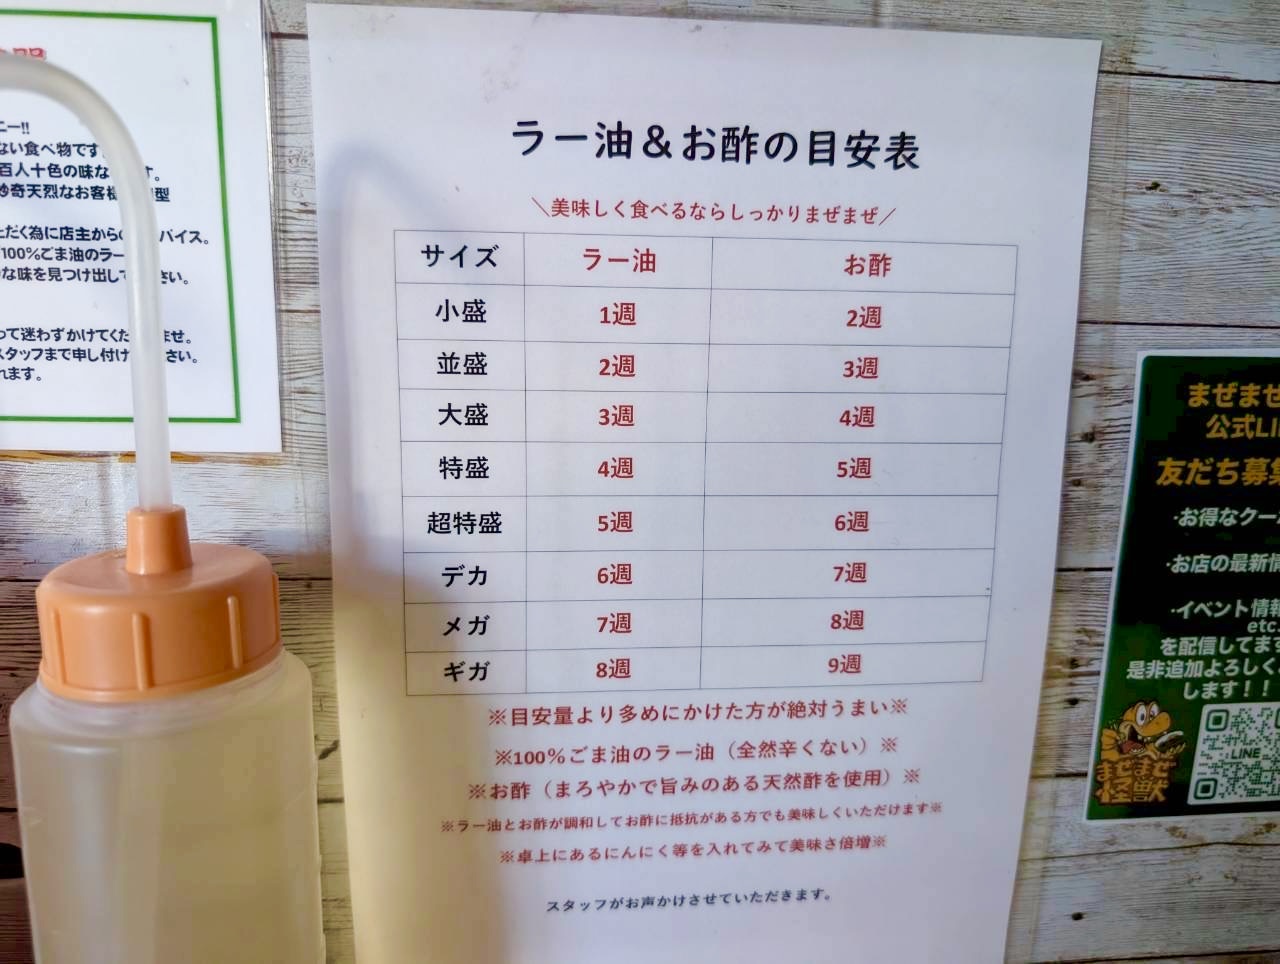 ラー油&お酢の目安表
＼美味しく食べるならしっかりまぜまぜ／
サイズ ラー油 お酢
小盛 1週 2週
並盛 2週 3週
大盛 3週 4週
特盛 4週 5週
超特盛 5週 6週
デカ 6週 7週
メガ 7週 8週
ギガ 8週 9週
※目安量より多めにかけた方が絶対うまい※
※100%ごま油のラー油（全然辛くない）※
※お酢（まろやかで旨みのある天然酢を使用）※
※ラー油とお酢が調和してお酢に抵抗がある方でも美味しくいただけます※
※卓上にあるにんにく等を入れてみて美味さ倍増※
スタッフがお声かけさせていただきます。
ニー!!
ない食べ物です
百人十色の味な す。
妙奇天烈なお客様 型
ただく為に店主から バイス。
100%ごま油のラー
な味を見つけ出して さい。
って迷わずかけてくだ ませ。
スタッフまで申し付け さい。
れます。
まぜませ
公式LI
友だち募集
・お得なクー
・お店の最新情
・イベント情報
etc.
を配信してます
是非追加よろしく
します！！
LINE
まぜまぜ
怪獣